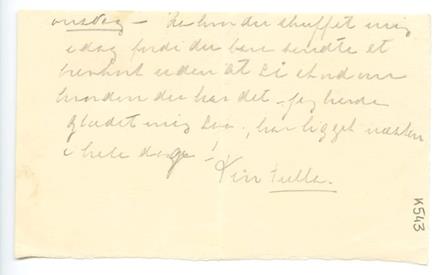 onsdag – Så har du skuffet mig
i dag fordi du bare sendte et
brevkort uden at si et ord om
hvordan du har det – Jeg havde
glædet mig saa, har ligget næsten
i hele dage!
Din Tulla.
K543